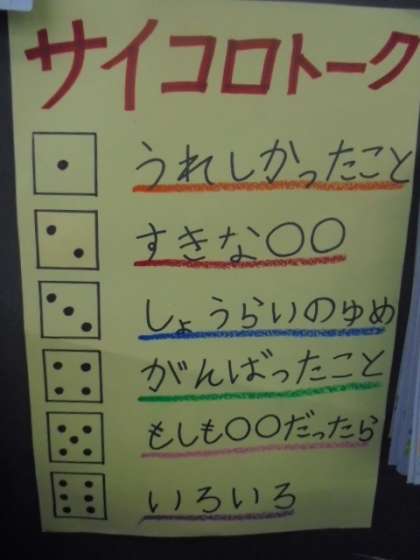 サイコロトーク
うれしかったこと
すきな〇〇
しょうらいのゆめ
がんばったこと
もしも〇〇だったら
いろいろ